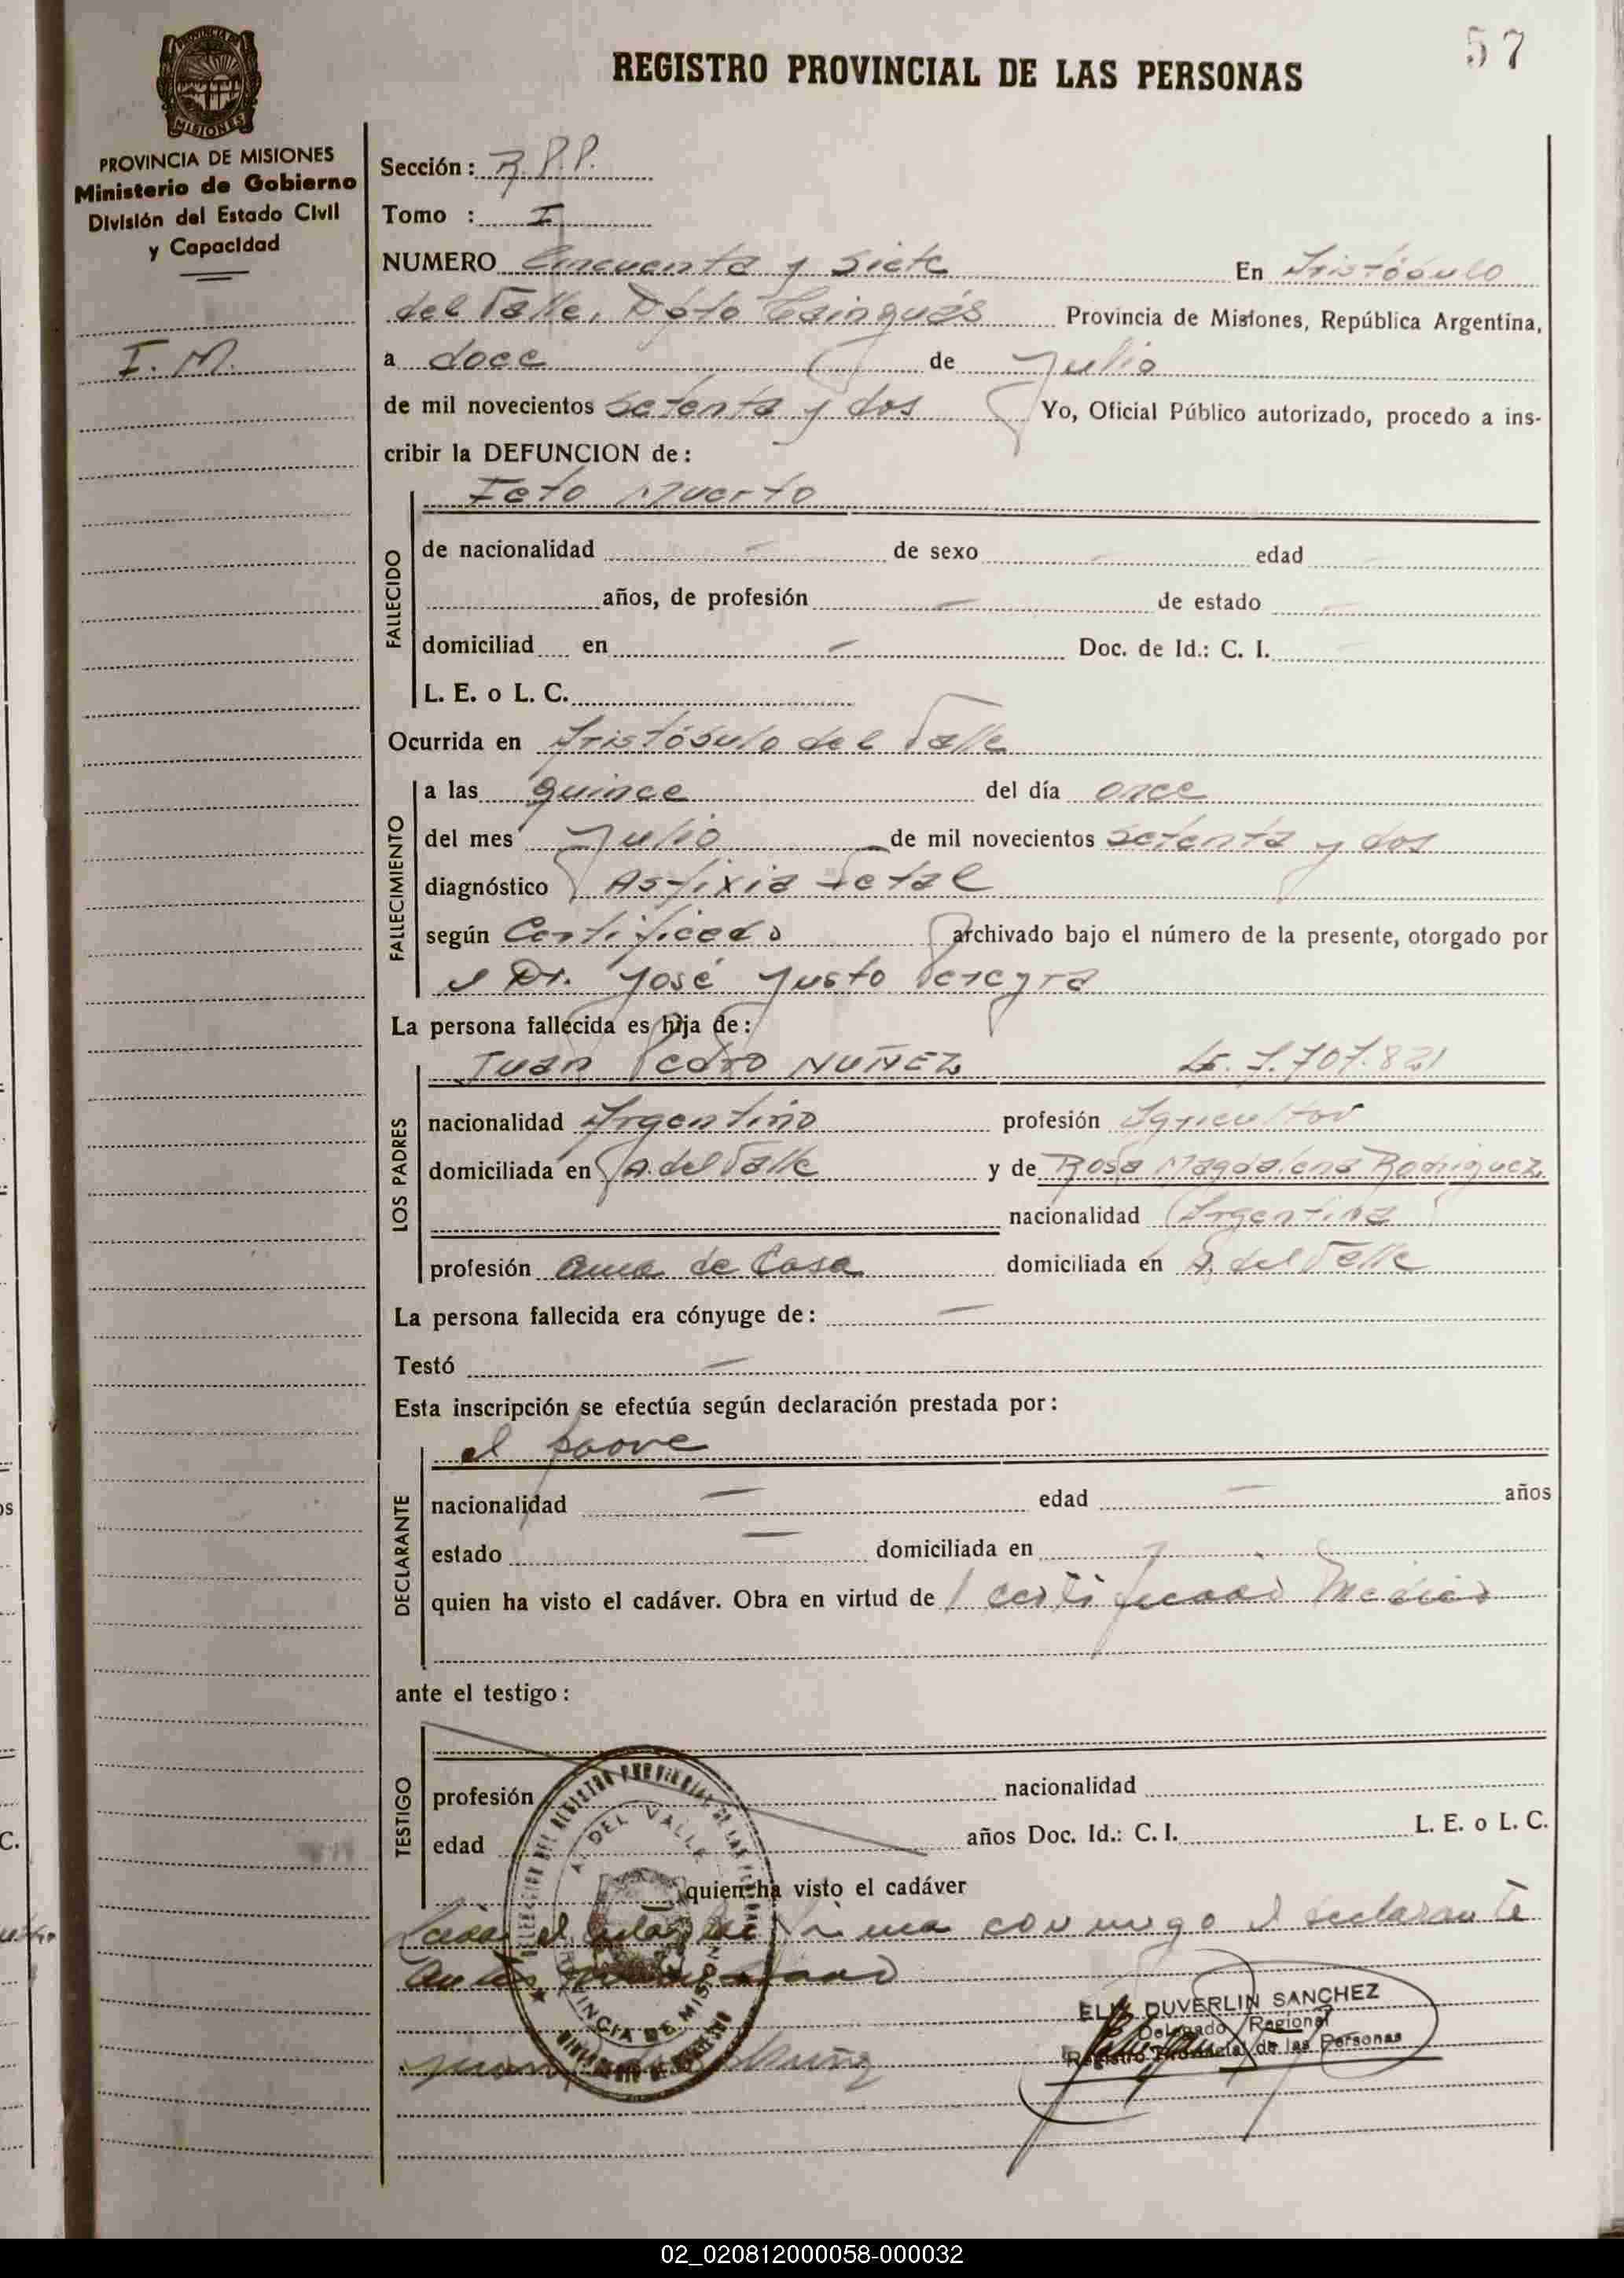 57
REGISTRO PROVINCIAL DE LAS PERSONAS
PROVINCIA DE MISIONES
MISIONES
PROVINCIA DE MISIONES
Ministerio de Gobierno
División del Estado Civil
y Capacidad
I. M.
Sección: R.P.P.
Tomo : I
NUMERO Cincuenta y Siete En Aristóbulo
del Valle, Dpto Cainguás Provincia de Misiones, República Argentina,
a doce de Julio
de mil novecientos Setenta y dos Yo, Oficial Público autorizado, procedo a ins-
cribir la DEFUNCION de:
FALLECIDO
Feto Muerto
de nacionalidad - de sexo - edad -
años, de profesión - de estado -
domiciliad en - Doc. de Id.: C. I. -
L. E. o L. C.
Ocurrida en Aristóbulo del Valle
FALLECIMIENTO
a las quince del día once
del mes Julio de mil novecientos Setenta y dos
diagnóstico Asfixia Fetal
según Certificado archivado bajo el número de la presente, otorgado por
el Dr. José Justo Pereyra
La persona fallecida es hija de:
LOS PADRES
Juan Pedro NUÑEZ LE. 7.707.821
nacionalidad Argentino profesión Agricultor
domiciliada en A. del Valle y de Rosa Magdalena Rodriguez
nacionalidad Argentina
profesión ama de Casa domiciliada en A. del Valle
La persona fallecida era cónyuge de: -
Testó -
Esta inscripción se efectúa según declaración prestada por:
DECLARANTE
el padre
nacionalidad - edad - años
estado - domiciliada en -
quien ha visto el cadáver. Obra en virtud de certificado Médico
ante el testigo:
TESTIGO
profesión nacionalidad
edad años Doc. Id.: C. I. L. E. o L. C.
quien ha visto el cadáver
Leída el acta la firma conmigo el declarante
antes mencionado
DEL REGISTRO PROVINCIAL DE LAS PERSONAS
A. DEL VALLE
PROVINCIA DE MISIONES
DUVERLIN SANCHEZ
Delegado Regional
Registro Provincial de las Personas
02_020812000058-000032